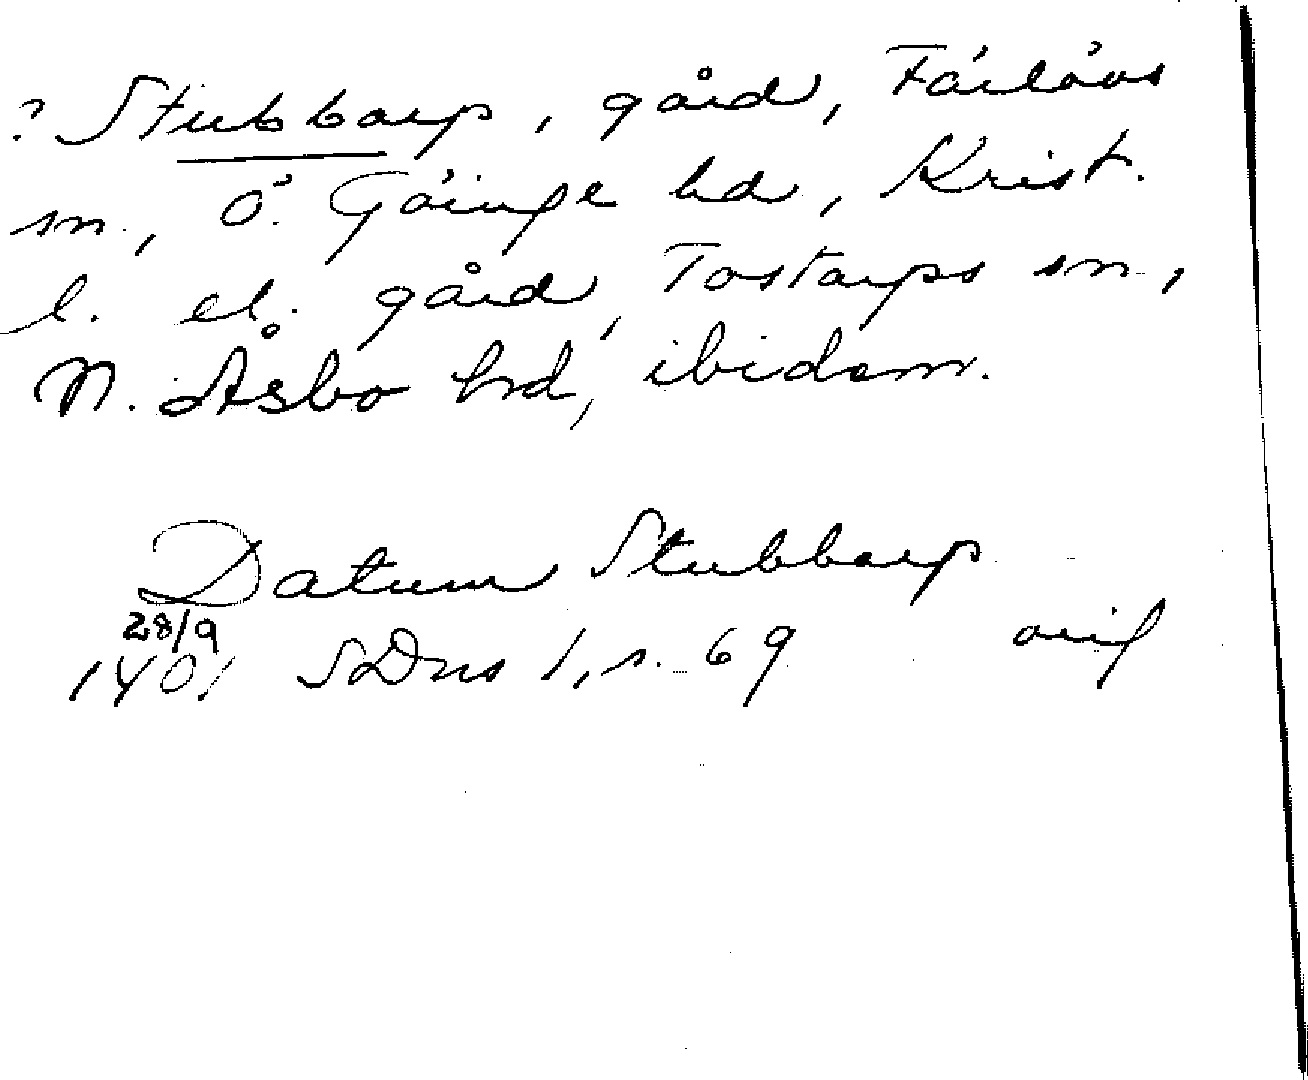 ? Stubbarp, gård, Färlövs
sn., Ö. Göinge hd, Krist.
l. el. gård, Tostarps sn,
N. Åsbo hrd, ibidem.
Datum Stubbarp
28/9
1401 SDns 1, s. 69 orig